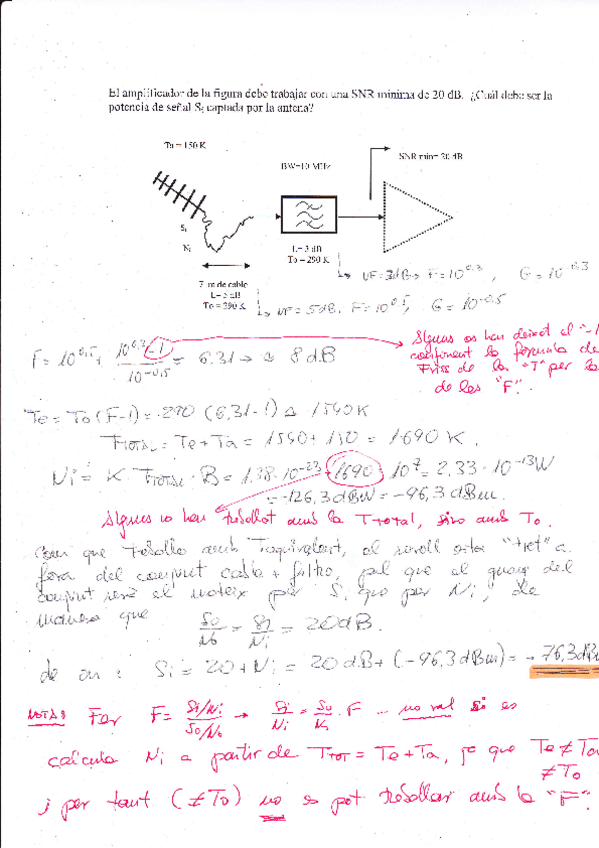 El amplificador de la figura debe trabajar con una SNR mínima de 20 dB. ¿Cuál debe ser la
potencia de señal Si captada por la antena?
Ta = 150 K
SNR min= 20 dB
BW=10 MHz
Si
Ni
L= 3 dB
To = 290 K
→ NF=3dB→ F=10^0.3, G=10^-0.3
7 m de cable
L= 5 dB
To = 290 K
→ NF=5dB. F=10^0.5, G=10^-0.5
F=10^0.5 + (10^0.3 -1)/10^-0.5 = 6.31 → 8 dB
Alguns os heu deixat el "-1"
confonent la fórmula de
Friss de la "T" per la
de les "F".
Te = To (F-1) = 290 (6,31-1) ≙ 1540K
TTOTAL = Te+Ta = 1540+150 = 1690 K.
Ni = K TTOTAL · B = 1.38·10^-23 · 1690 · 10^7 = 2,33·10^-13 W
= -126,3 dBW = -96,3 dBm.
Alguns no han treballat amb la TTOTAL, sino amb To.
Com que treballo amb Tequivalent, el soroll esta "tret" a
fora del conjunt cable + filtro, pel que el guany del
conjunt serà el mateix per Si que per Ni, de
manera que So/No = Si/Ni = 20dB.
de on: Si = 20+Ni = 20dB+(-96,3dBm) = -76,3dBm
NOTA: Fer F= (Si/Ni)/(So/No) → Si/Ni = So/No · F ... no val si es
calcula Ni a partir de TTOT = Te+Ta, ja que Te≠Ta
≠To
i per tant (≠To) no es pot treballar amb la "F".